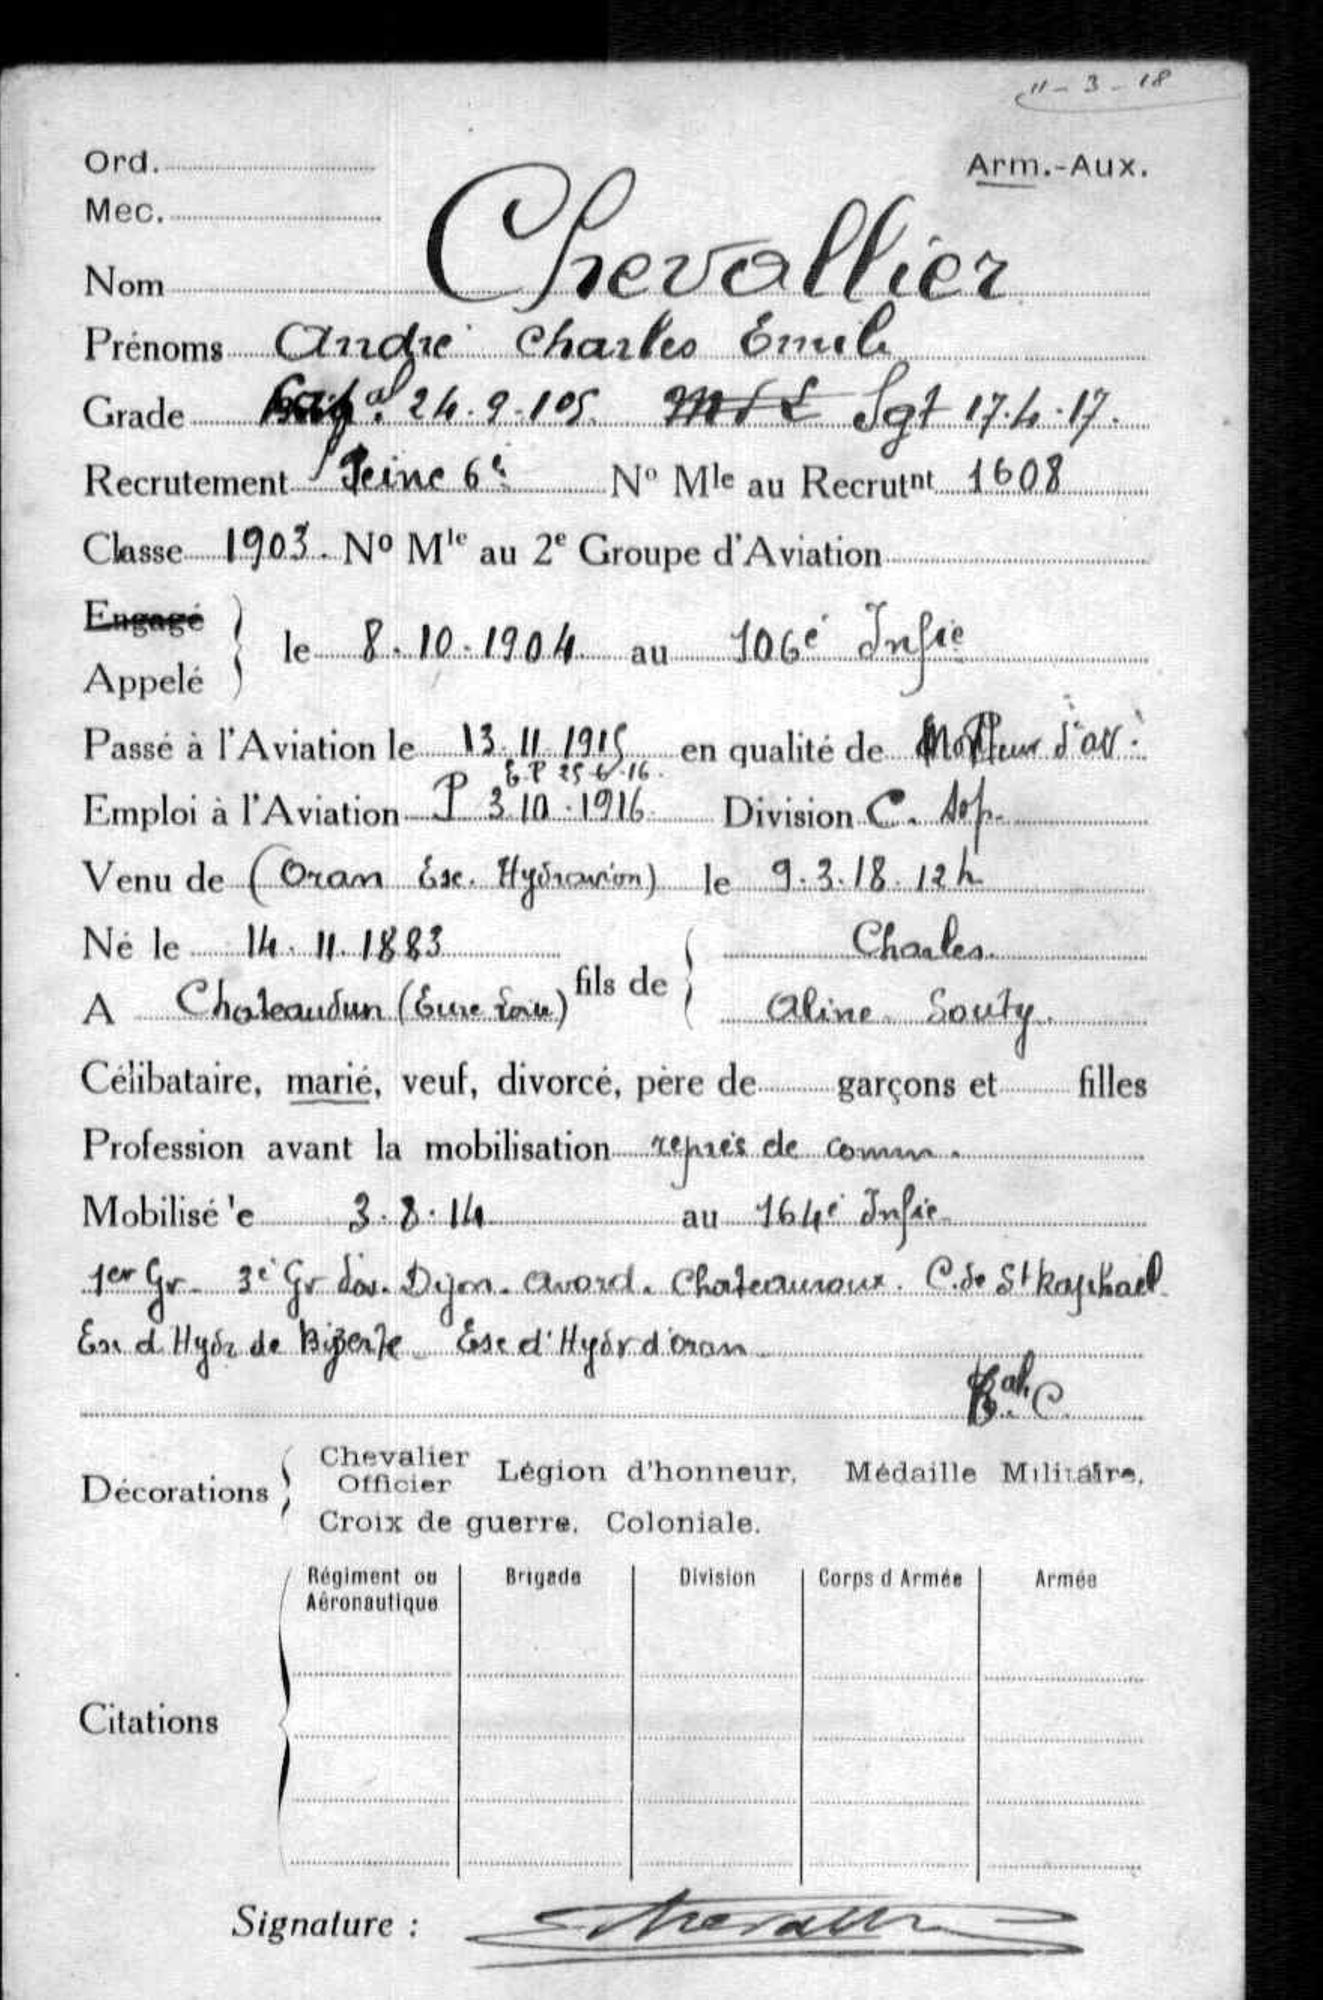 11-3-18
Ord.
Arm.-Aux.
Mec.
Nom Chevallier
Prénoms André Charles Emile
Grade 24.9.105. Sgt 17.4.17.
Recrutement Seine 6e No Mle au Recrutnt 1608
Classe 1903. No Mle au 2e Groupe d'Aviation
Engagé
le 8.10.1904 au 106e Infie
Appelé
Passé à l'Aviation le 13.11.1915 en qualité de d'av.
E.P 25-6-16.
Emploi à l'Aviation P 3.10.1916 Division C. dép.
Venu de (Oran Esc. Hydravion) le 9.3.18. 12h
Né le 14.11.1883 Charles.
fils de
A Chateaudun (Eure Loire) Aline Souty.
Célibataire, marié, veuf, divorcé, père de garçons et filles
Profession avant la mobilisation représ de comm.
Mobilisé 'e 3.8.14 au 164e Infie
1er Gr. 3e Gr d'av. Dijon. Avord. Chateauroux. C. de St Raphael
Esc d'Hydr de Bizerte Esc d'Hydr d'oran
C.
Décorations
Chevalier
Officier
Légion d'honneur, Médaille Militaire,
Croix de guerre, Coloniale.
Régiment ou Aéronautique Brigade Division Corps d'Armée Armée
Citations
Signature : Chevallier